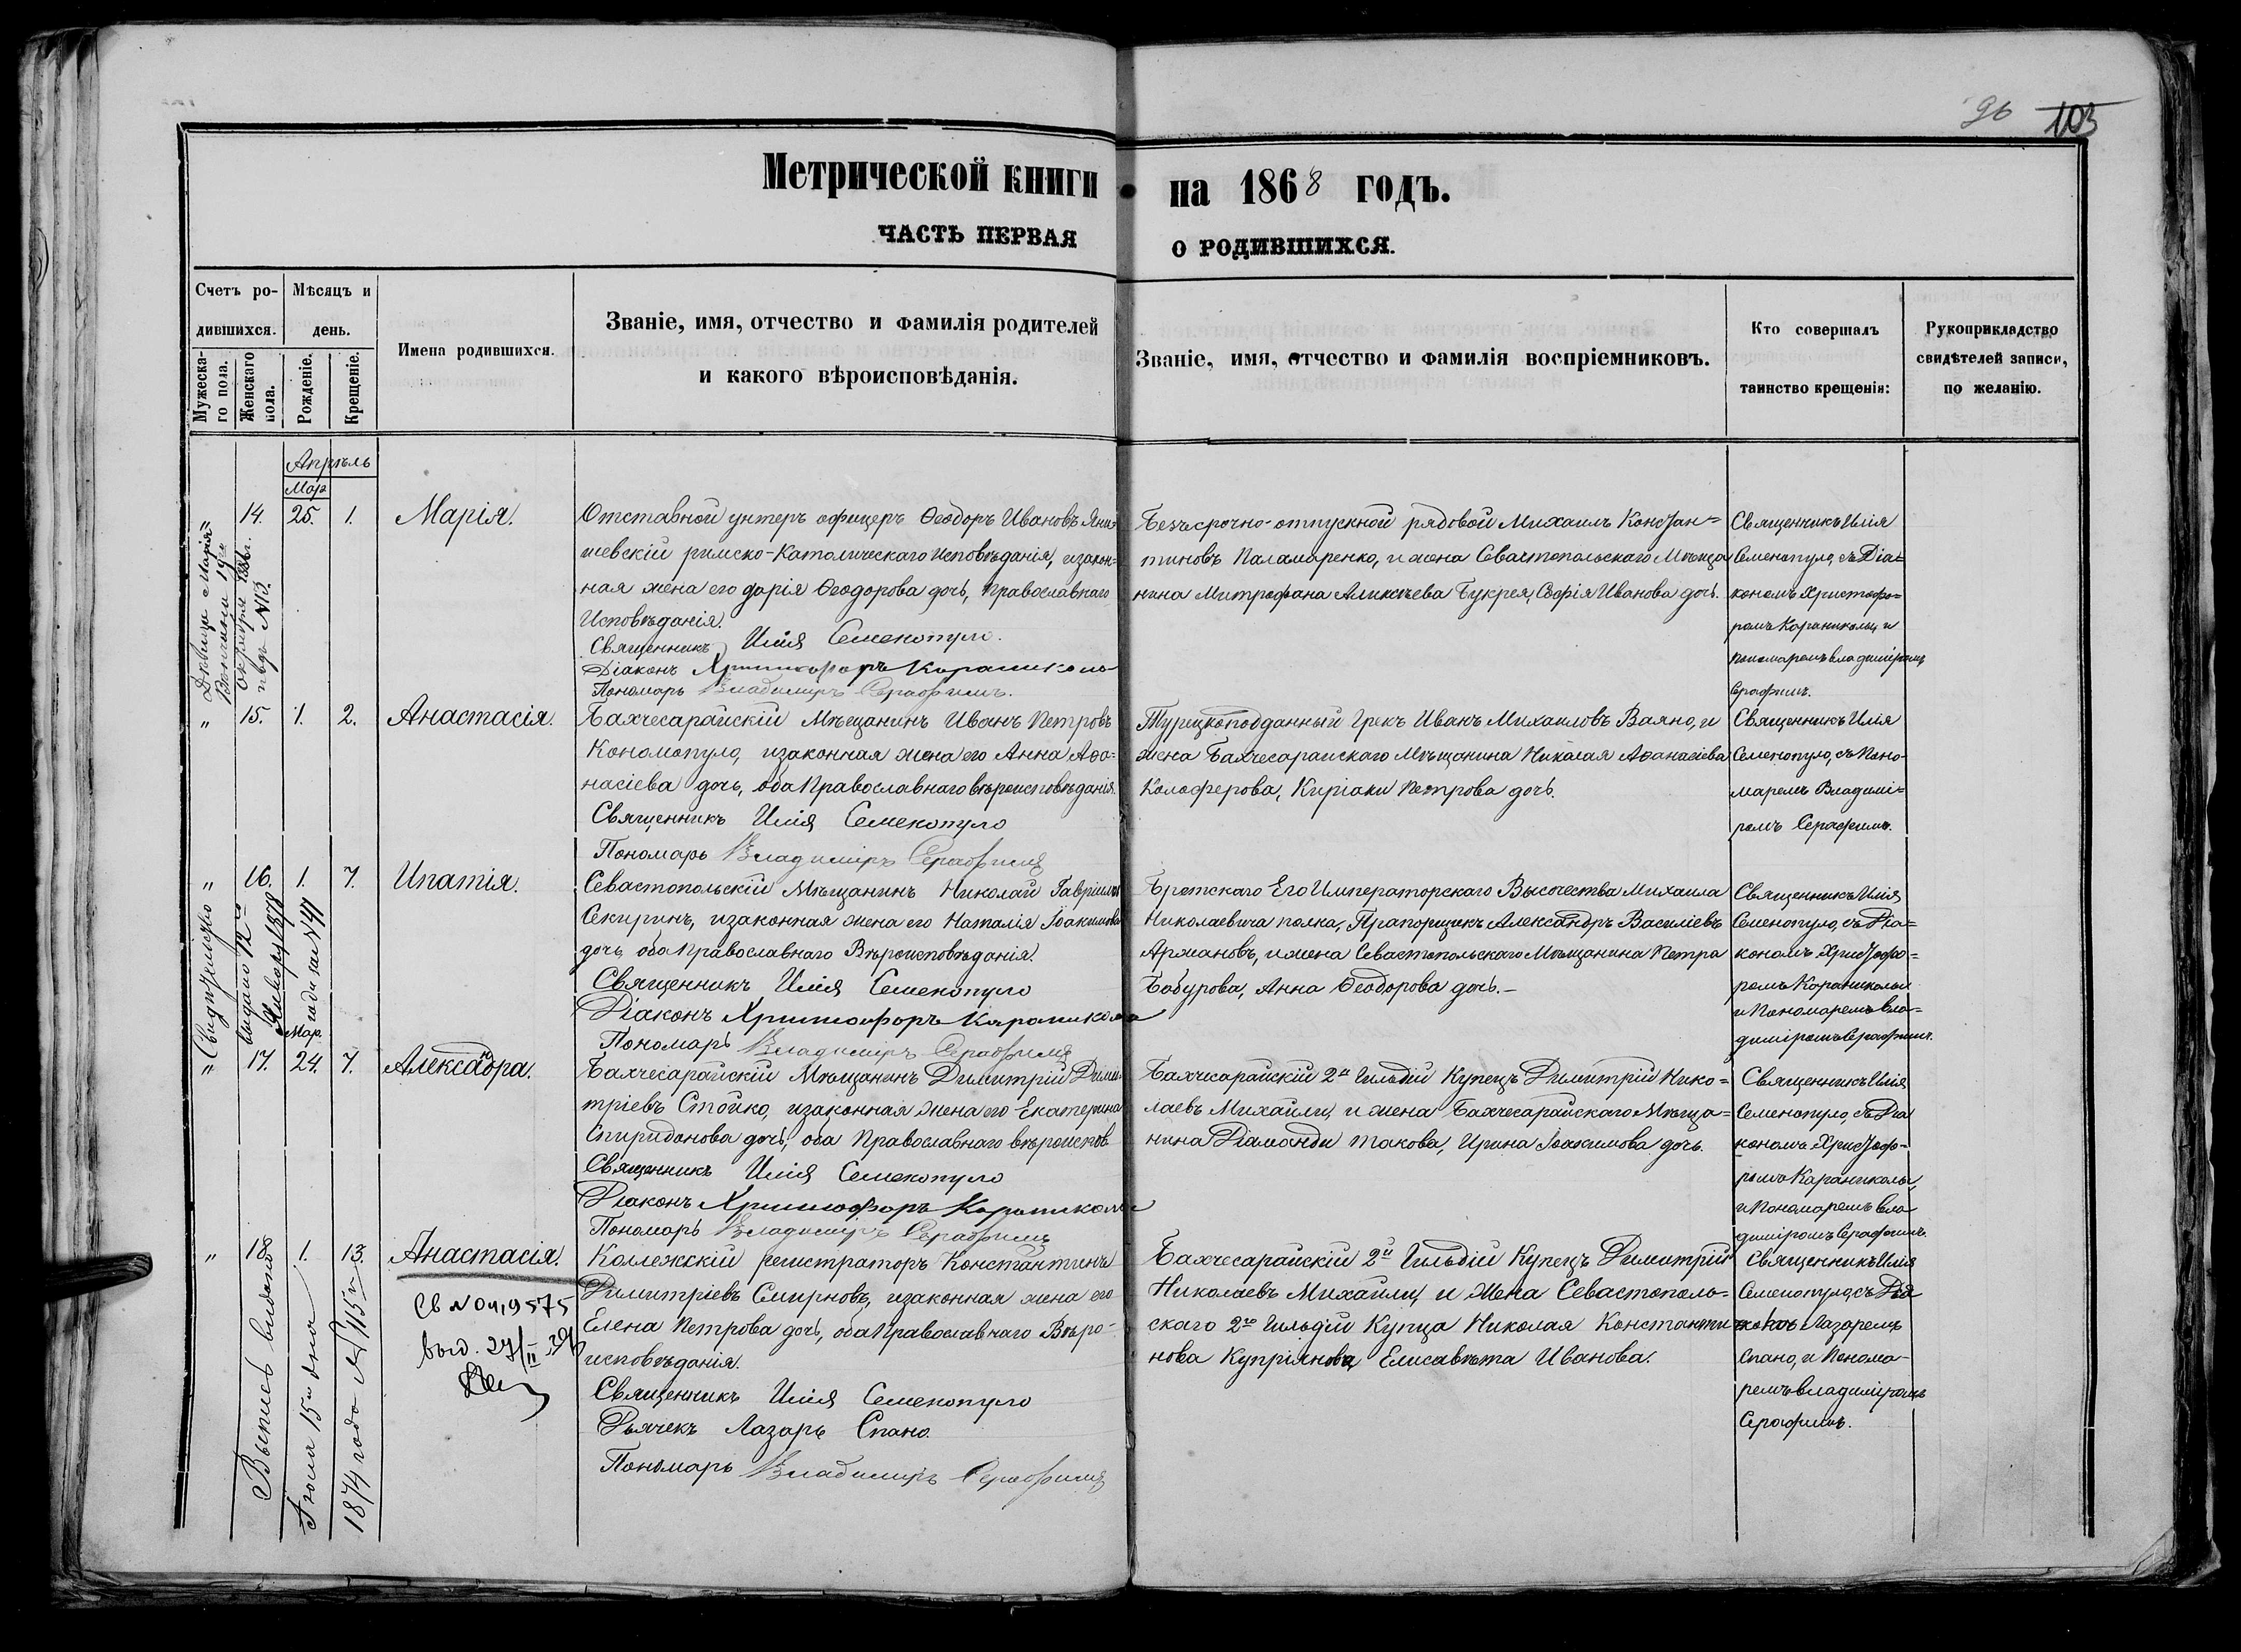 96 103
Метрической книги на 1868 годъ.
ЧАСТЬ ПЕРВАЯ О РОДИВШИХСЯ.
Счетъ ро-
дившихся.
Мужеска-
го пола.
Женскаго
пола.
Мѣсяцъ и
день.
Рожденіе.
Крещеніе.
Имена родившихся.
Званіе, имя, отчество и фамилія родителей
и какого вѣроисповѣданія.
Званіе, имя, отчество и фамилія воспріемниковъ.
Кто совершалъ
таинство крещенія:
Рукоприкладство
свидѣтелей записи,
по желанію.
Апрѣль
Мар
14. 25. 1. Марія.
Отставной унтеръ офицеръ Ѳеодоръ Ивановъ Яни-
шевскій римско-Католическаго исповѣданія, и закон-
ная жена его Дарія Ѳеодорова дочь, Православнаго
Исповѣданія.
Священникъ Илія Семенопуло.
Діаконъ Христофоръ Караникола
Пономарь Владиміръ Серафимъ.
Безъсрочно-отпускной рядовой Михаилъ Констан-
тиновъ Паламаренко, и жена Севастопольскаго Мѣща
нина Митрофана Алексѣева Букрея, Софія Иванова дочь.
Священникъ Илія
Семенопуло, съ Діа-
кономъ Христофо-
ромъ Караниколы и
пономаремъ Владиміромъ
Серафимъ.
" 15. 1. 2. Анастасія.
Бахчесарайскій Мѣщанинъ Иванъ Петровъ
Кономопуло, и законная жена его Анна Афа-
насіева дочь, оба Православнаго вѣроисповѣданія.
Священникъ Илія Семенопуло
Пономарь Владиміръ Серафимъ
Турецкоподданный Грекъ Иванъ Михаиловъ Ваяно, и
жена Бахчесарайскаго Мѣщанина Николая Афанасіева
Колоферова, Киріаки Петрова дочь.
Священникъ Илія
Семенопуло, съ Поно-
маремъ Владимі-
ромъ Серафимъ.
" 16. 1. 7. Ипатія.
Свидѣтелство
выдано 12го
Января 1878
года за №41
Севастопольскій Мѣщанинъ Николай Гавріиловъ
Секиринъ, и законная жена его Наталія Іоакимова
дочь, оба Православнаго Вѣроисповѣданія.
Священникъ Илія Семенопуло
Діаконъ Христофоръ Караникола
Пономарь Владиміръ Серафимъ
Его Императорскаго Высочества Михаила
Николаевича полка, Прапорщикъ Александръ Василіевъ
Армановъ, и жена Севастопольскаго Мѣщанина Петра
Бабурова, Анна Ѳеодорова дочь.-
Священникъ Илія
Семенопуло, съ Діа-
кономъ Христофо-
ромъ Караниколы
и Пономаремъ Вла-
диміромъ Серафимъ.
Мар.
" 17. 24. 7. Александра.
Бахчесарайскій Мѣщанинъ Димитрій Дими-
тріевъ Стойко, и законная жена его Екатерина
Спиридонова дочь, оба Православнаго вѣроиспов
Священникъ Илія Семенопуло
Діаконъ Христофоръ Караникола
Пономарь Владиміръ Серафимъ
Бахчесарайскій 2й Гильдій Купецъ Димитрій Нико-
лаевъ Михайли, и жена Бахчесарайскаго Мѣща-
нина Діаманди Такова, Ирина Іоакимова дочь.
Священникъ Илія
Семенопуло, съ Діа
кономъ Христоф-
ромъ Караниколы,
и Пономаремъ Вла
диміромъ Серафимъ.
" 18. 1. 13. Анастасія.
Выпись выдана
Іюля 15го дня
1874 года №115й
Св №049575
выд. 27/II
Колежскій регистраторъ Константинъ
Димитріевъ Смирновъ, и законная жена его
Елена Петрова дочь, оба Православнаго Вѣро-
исповѣданія.
Священникъ Илія Семенопуло
Дьячекъ Лазарь Спано.
Пономарь Владиміръ Серафимъ
Бахчесарайскій 2й Гильдій Купецъ Димитрій
Николаевъ Михайли, и Жена Севастополь-
скаго 2й Гильдіи Купца Николая Константи
нова Купріянова Елисавѣта Иванова.
Священникъ Илія
Семенопуло, съ
Лазаремъ
Спано, и Понома-
ремъ Владиміромъ
Серафимъ.